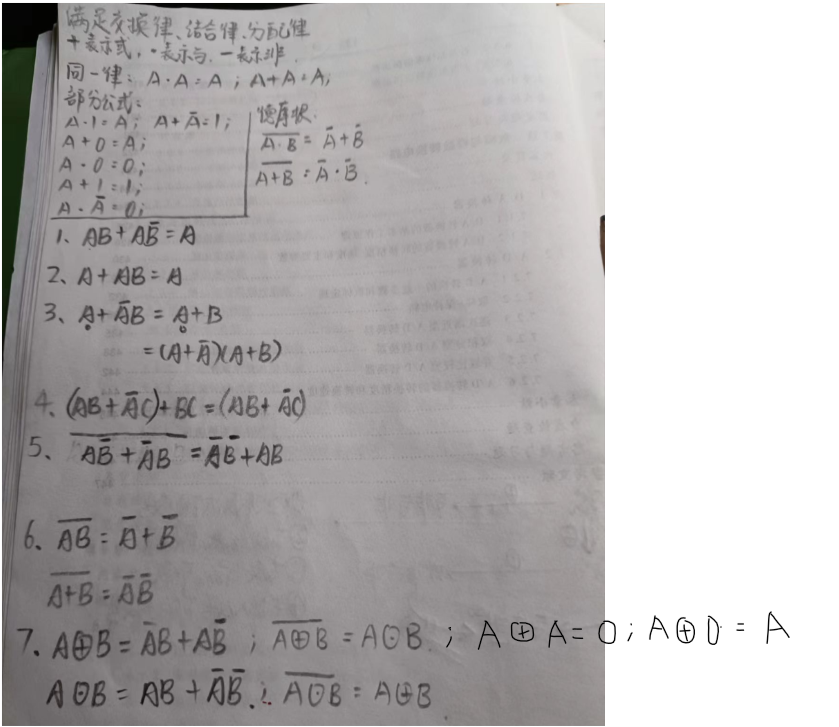 满足交换律、结合律、分配律
+表示或，·表示与，—表示非.
同一律：A·A=A；A+A=A；
部分公式：
A·1=A；A+A̅=1；
A+0=A；
A·0=0；
A+1=1；
A·A̅=0；
德摩根
\overline{A·B} = A̅+B̅
\overline{A+B} = A̅·B̅.
1、AB+AB̅=A
2、A+AB=A
3、A+A̅B=A+B
=(A+A̅)(A+B)
4、(AB+A̅C)+BC=(AB+A̅C)
5、\overline{AB̅+A̅B} = A̅B̅+AB
6、\overline{AB} = A̅+B̅
\overline{A+B} = A̅B̅
7、A⊕B=A̅B+AB̅；\overline{A⊕B} = A⊙B.；A⊕A=0；A⊕0=A
A⊙B=AB+A̅B̅.；\overline{A⊙B} = A⊕B